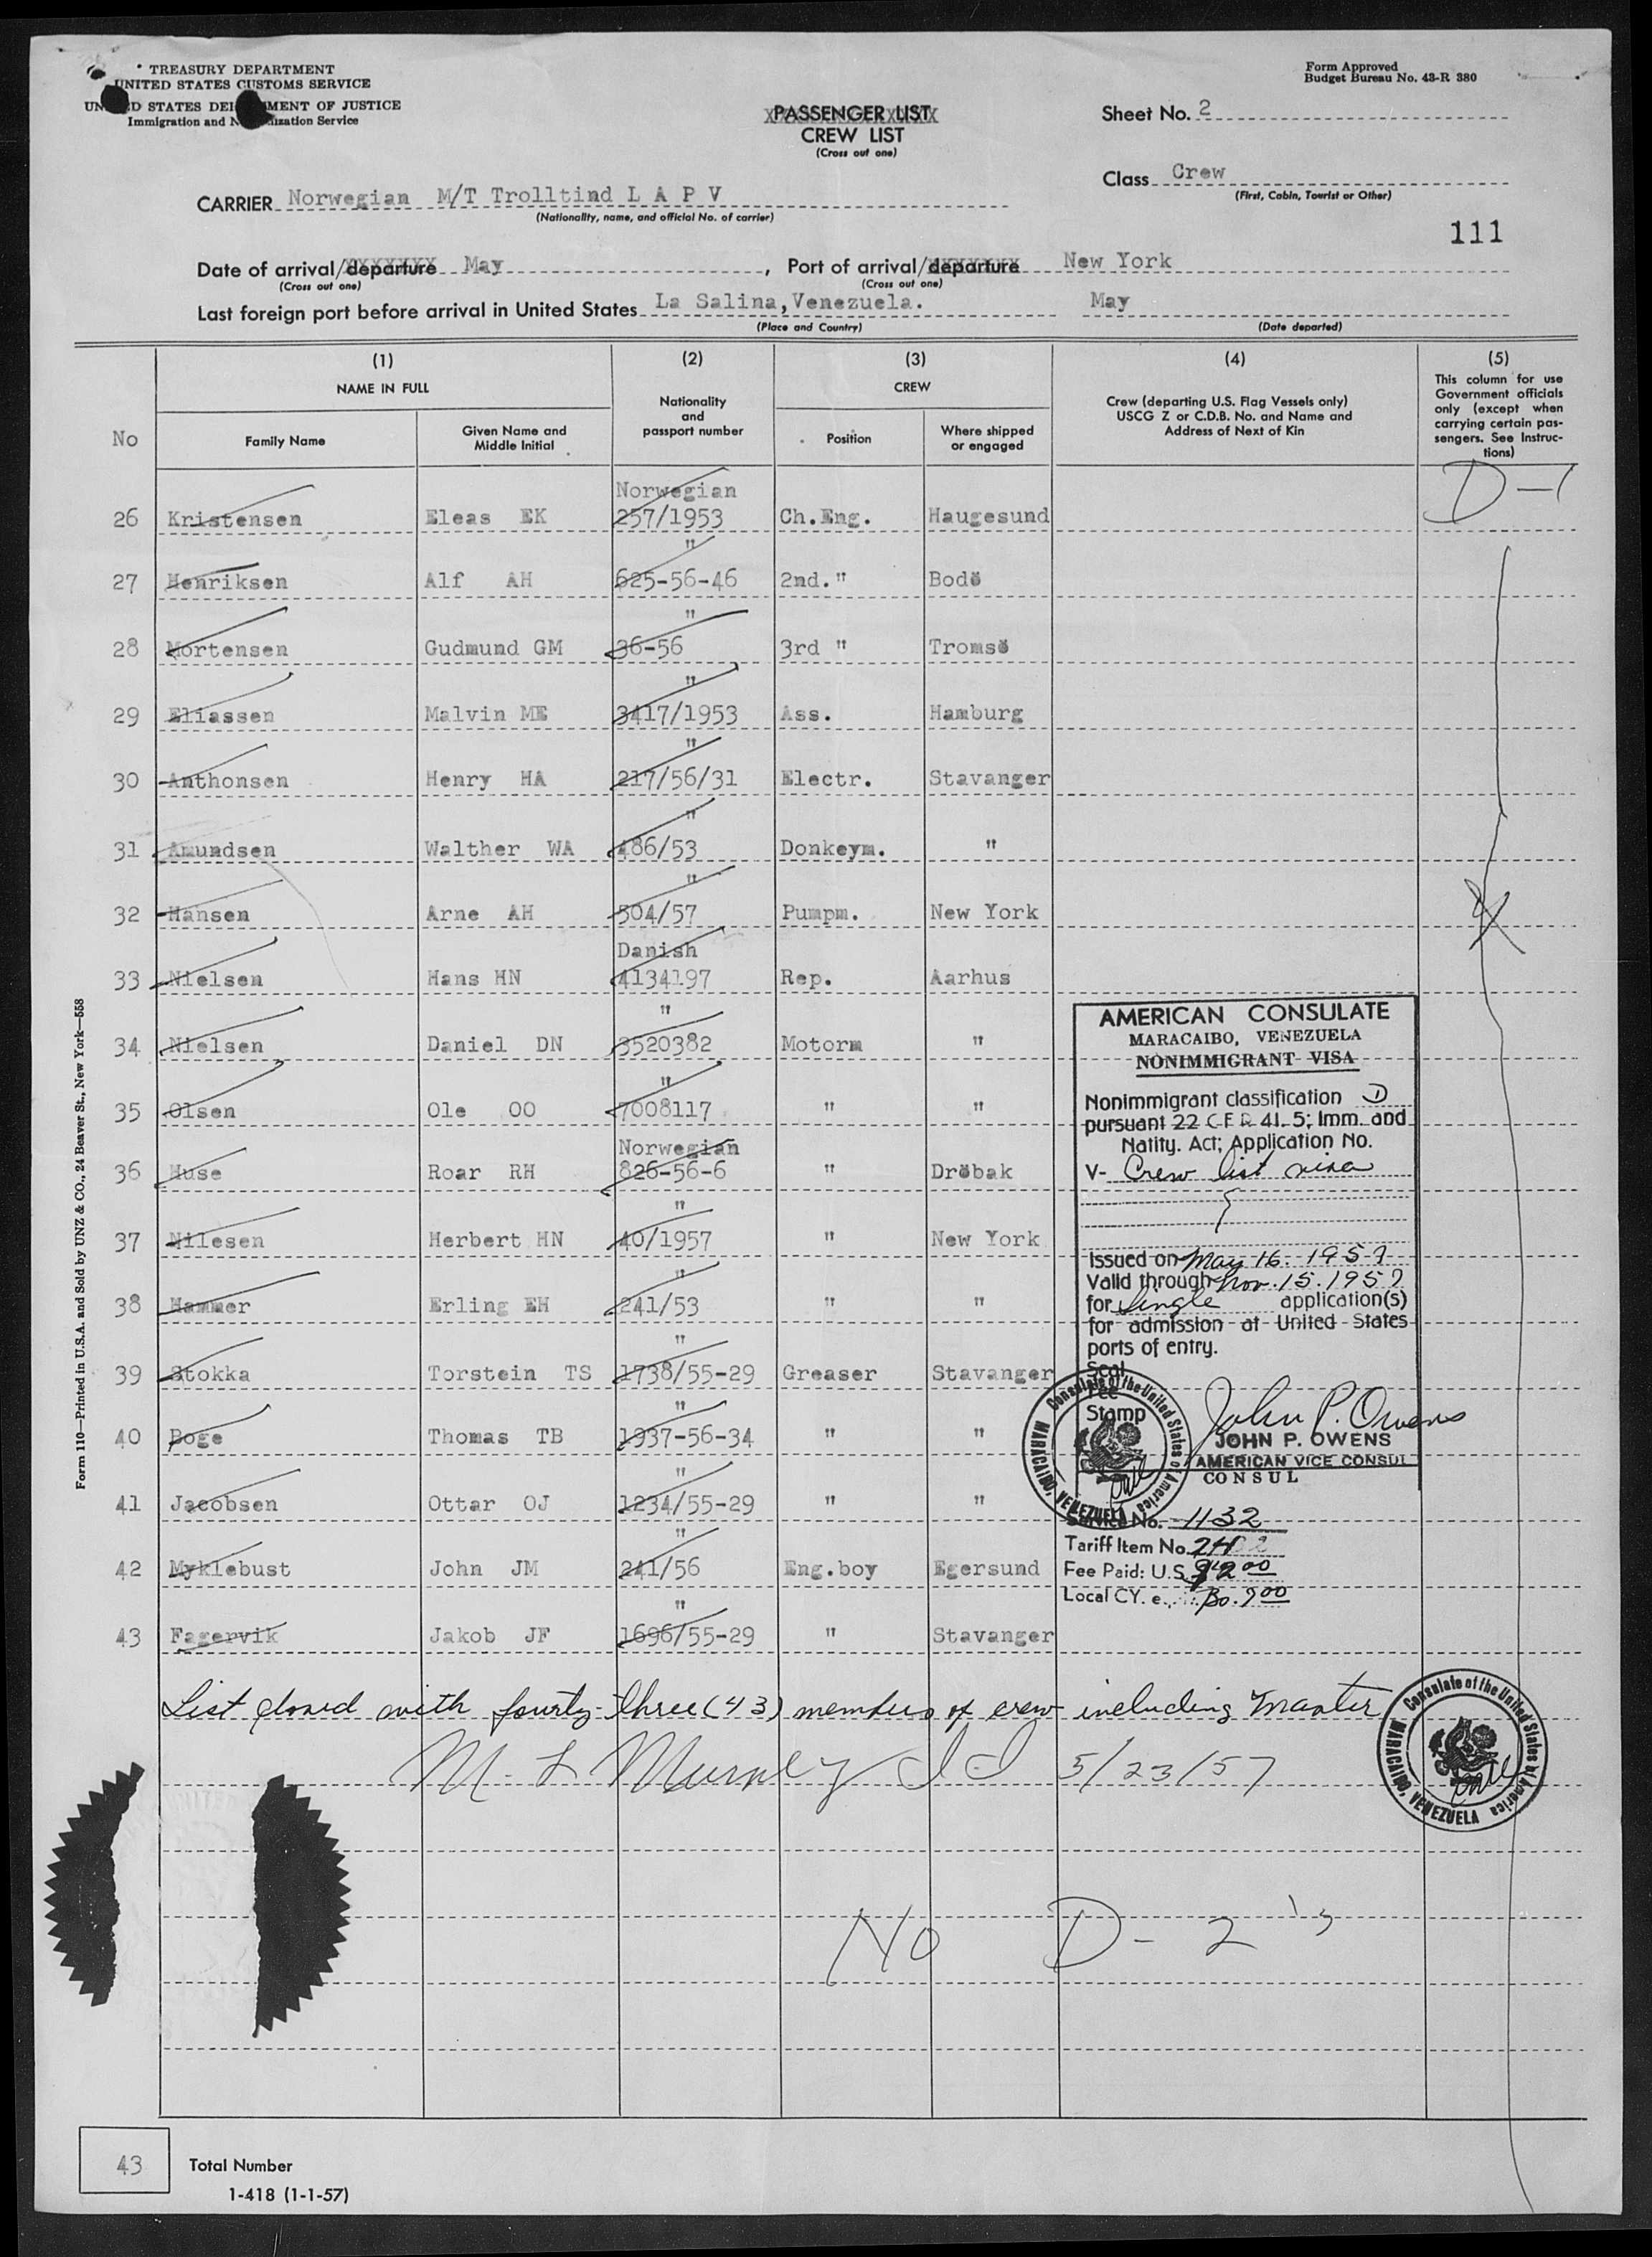 TREASURY DEPARTMENT
UNITED STATES CUSTOMS SERVICE
UNITED STATES DEPARTMENT OF JUSTICE
Immigration and Naturalization Service
Form Approved
Budget Bureau No. 43-R 380
PASSENGER LIST
CREW LIST
(Cross out one)
Sheet No. 2
Class Crew
(First, Cabin, Tourist or Other)
CARRIER Norwegian M/T Trolltind L A P V
(Nationality, name, and official No. of carrier)
111
Date of arrival/departure May, Port of arrival/departure New York
(Cross out one) (Cross out one)
Last foreign port before arrival in United States La Salina, Venezuela. May
(Place and Country) (Date departed)
(1) (2) (3) (4) (5)
NAME IN FULL
Nationality and passport number
CREW
Crew (departing U.S. Flag Vessels only) USCG Z or C.D.B. No. and Name and Address of Next of Kin
This column for use Government officials only (except when carrying certain passengers. See Instructions)
No Family Name Given Name and Middle Initial Position Where shipped or engaged
Norwegian D-1
26 Kristensen Eleas EK 257/1953 Ch.Eng. Haugesund
"
27 Henriksen Alf AH 625-56-46 2nd." Bodö
"
28 Mortensen Gudmund GM 36-56 3rd " Tromsö
"
29 Eliassen Malvin ME 3417/1953 Ass. Hamburg
"
30 Anthonsen Henry HA 217/56/31 Electr. Stavanger
"
31 Amundsen Walther WA 486/53 Donkeym. "
"
32 Hansen Arne AH 504/57 Pumpm. New York
Danish
33 Nielsen Hans HN 4134197 Rep. Aarhus
"
34 Nielsen Daniel DN 3520382 Motorm "
"
35 Olsen Ole OO 7008117 " "
Norwegian
36 Huse Roar RH 826-56-6 " Dröbak
"
37 Nilesen Herbert HN 40/1957 " New York
"
38 Hammer Erling EH 241/53 " "
"
39 Stokka Torstein TS 1738/55-29 Greaser Stavanger
"
40 Boge Thomas TB 1937-56-34 " "
"
41 Jacobsen Ottar OJ 1234/55-29 " "
"
42 Myklebust John JM 241/56 Eng.boy Egersund
"
43 Fagervik Jakob JF 1696/55-29 " Stavanger
AMERICAN CONSULATE
MARACAIBO, VENEZUELA
NONIMMIGRANT VISA
Nonimmigrant classification D
pursuant 22 CFR 41.5; Imm. and
Natlty. Act; Application No.
V- Crew list visa
Issued on May 16. 1957
Valid through Nov. 15. 1957
for Single application(s)
for admission at United States
ports of entry.
Seal
Fee
Stamp
John P. Owens
JOHN P. OWENS
AMERICAN VICE CONSUL
CONSUL
Consulate of the United States of America
MARACAIBO, VENEZUELA
Service No. 1132
Tariff Item No. 24
Fee Paid: U.S. $2.00
Local CY. e. Bo. 7.00
List closed with fourty-three (43) members of crew including Master
M. L Murphy 5/23/57
Consulate of the United States of America
MARACAIBO, VENEZUELA
No D-2's
43 Total Number
1-418 (1-1-57)
Form 110—Printed in U.S.A. and Sold by UNZ & CO., 24 Beaver St., New York—558